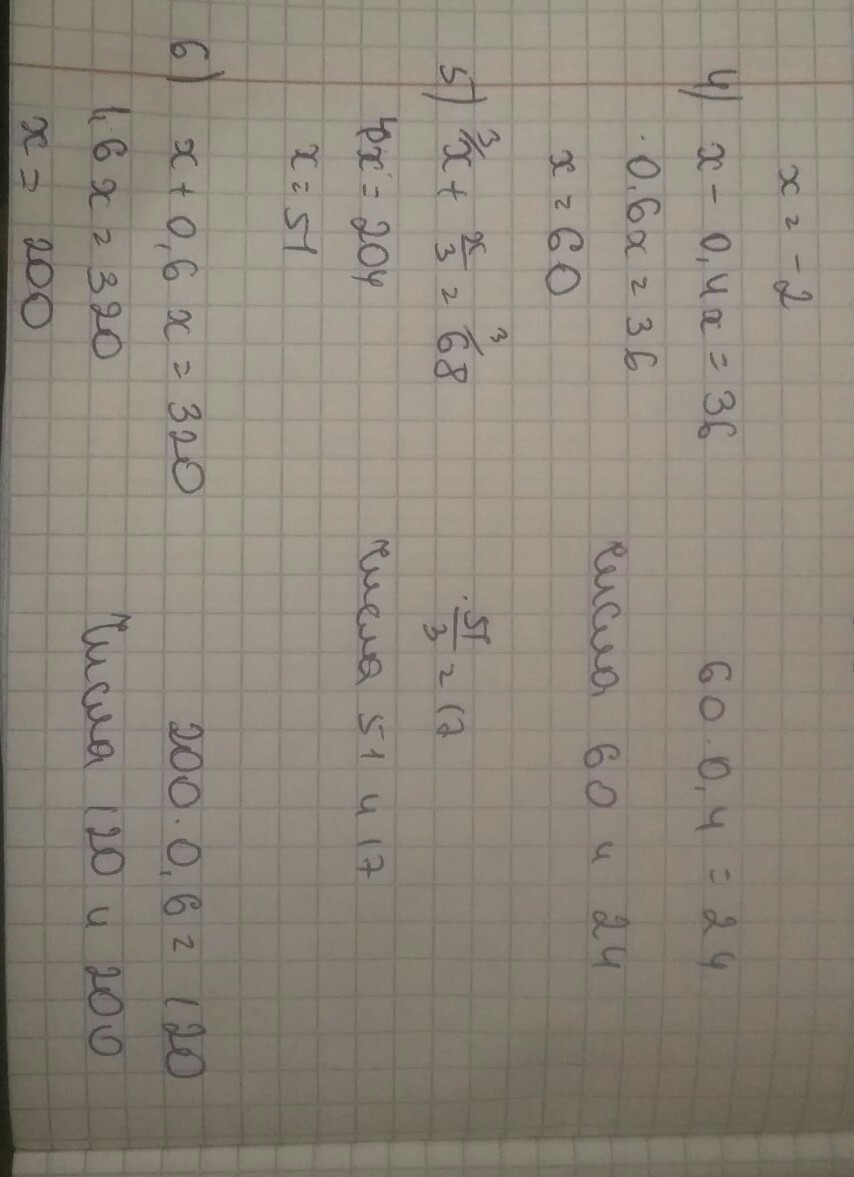 x = -2
4) x - 0,4x = 36 60 · 0,4 = 24
0,6x = 36 числа 60 и 24
x = 60
5) x + x/3 = 68 51/3 = 17
4x = 204 числа 51 и 17
x = 51
6) x + 0,6x = 320 200 · 0,6 = 120
1,6x = 320 Числа 120 и 200
x = 200